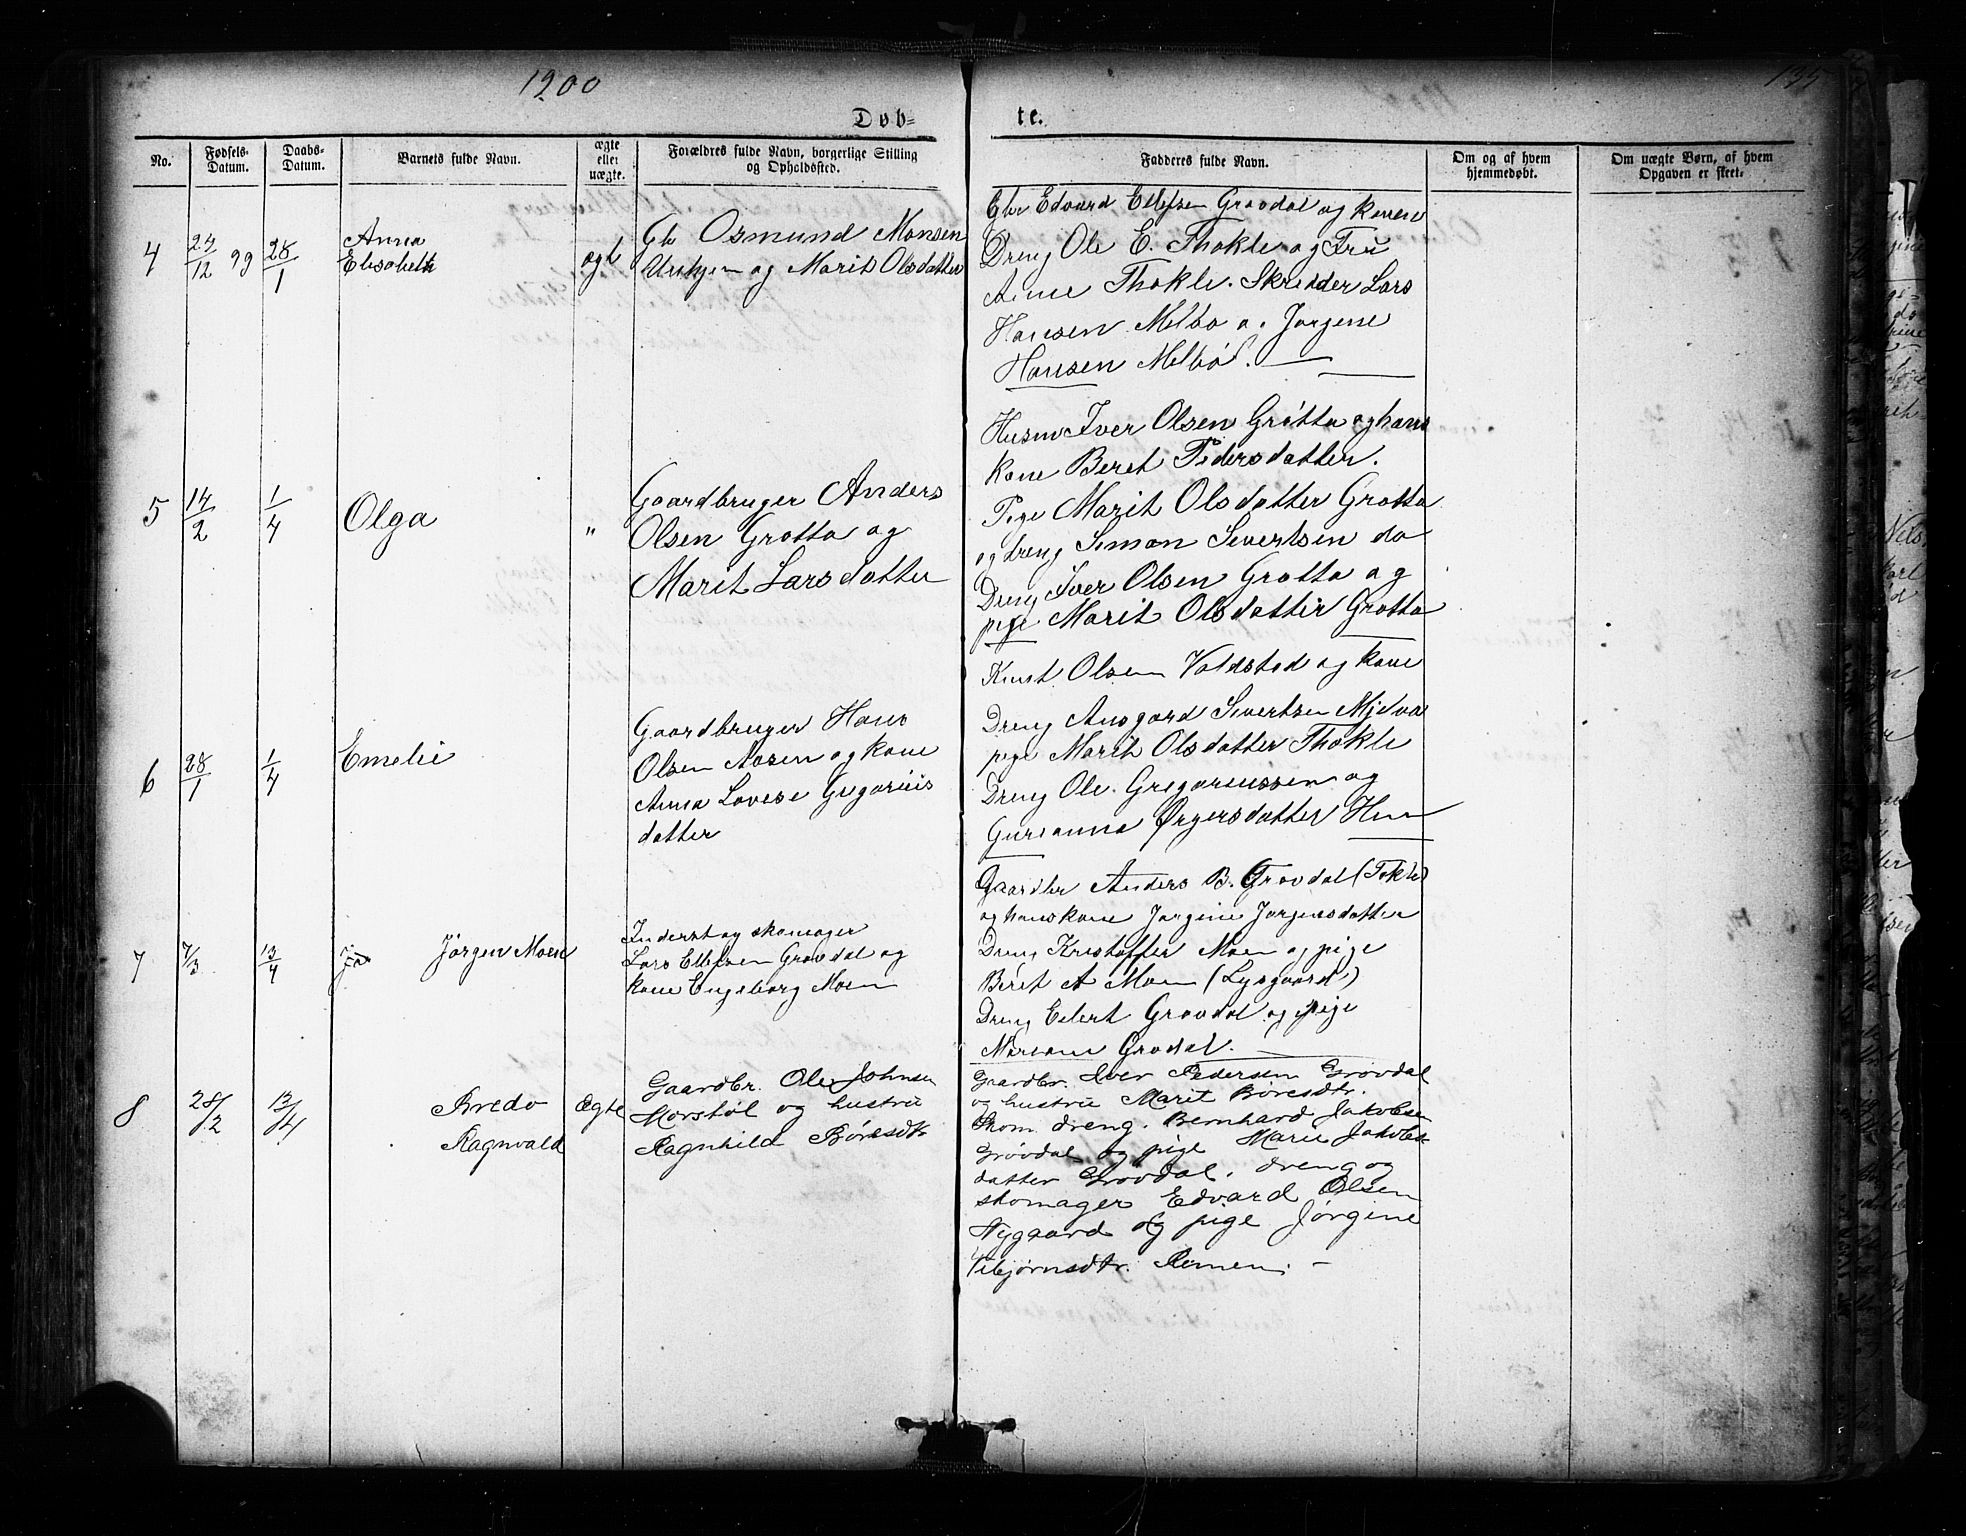 1900
135
Døb-
te.
No.
Fødsels-
Datum.
Daabs-
Datum.
Barnets fulde Navn.
ægte
eller
uægte.
Forældres fulde Navn, borgerlige Stilling
og Opholdssted.
Fadderes fulde Navn.
Om og af hvem
hjemmedøbt.
Om uægte Børn, af hvem
Opgaven er skeet.
4
23/12 99
28/1
Anna
Elisabeth
ægt
Gb Osmund Monsen
og Marit Olsdatter
Gbr Edvard Ellefsen Grøvdal og kone
Dreng Ole E. Thokle og Fru
Anne Thokle. Skrædder Lars
Hansen Melbø o. Jørgene
Hansen Melbø.
5
14/2
1/4
Olga
"
Gaardbruger Anders
Olsen Grøtta og
Marit Larsdatter
Husm Iver Olsen Grøtta og hans
kone Beret Pedersdatter.
Pige Marit Olsdatter Grøtta
og dreng Simon Sivertsen do
Dreng Iver Olsen Grøtta og
pige Marit Olsdatter Grøtta
6
28/1
1/4
Emelie
Gaardbruger Hans
Olsen Aasen og kone
Anna Lovise Gregorius
datter
Knut Olsen Voldstad og kone
Dreng Ansgard Sivertsen Mjelva
pige Marit Olsdatter Thokle
Dreng Ole. Gregoriussen og
Gurianna Ørgersdatter
7
7/3
13/4
ja
Jørgen Moen
Inderst og skomager
Lars Ellefsen Grøvdal og
kone Engeborg Moen
Gaardbr Anders B. Grøvdal (Tokle)
og hans kone Jørgine Jørgensdatter
Dreng Kristoffer Moen og pige
Beret A Moen (Lysgaard)
Dreng Edert Grøvdal og pige
Mariane Grødal.
8
28/2
13/4
Bredo
Ragnvald
Ægte
Gaardbr. Ole Johnsen
Morstøl og hustru
Ragnhild Børesdtr
Gaardbr. Iver Pedersen Grøvdal
og hustru Marit Børesdtr.
Skom. dreng. Bernhard Jakobsen
Grøvdal og pige Marie Jakobs
datter Grøvdal. dreng og
skomager Edvard Olsen
Nygaard og pige Jørgine
Vibjørnsdtr. Remem. –